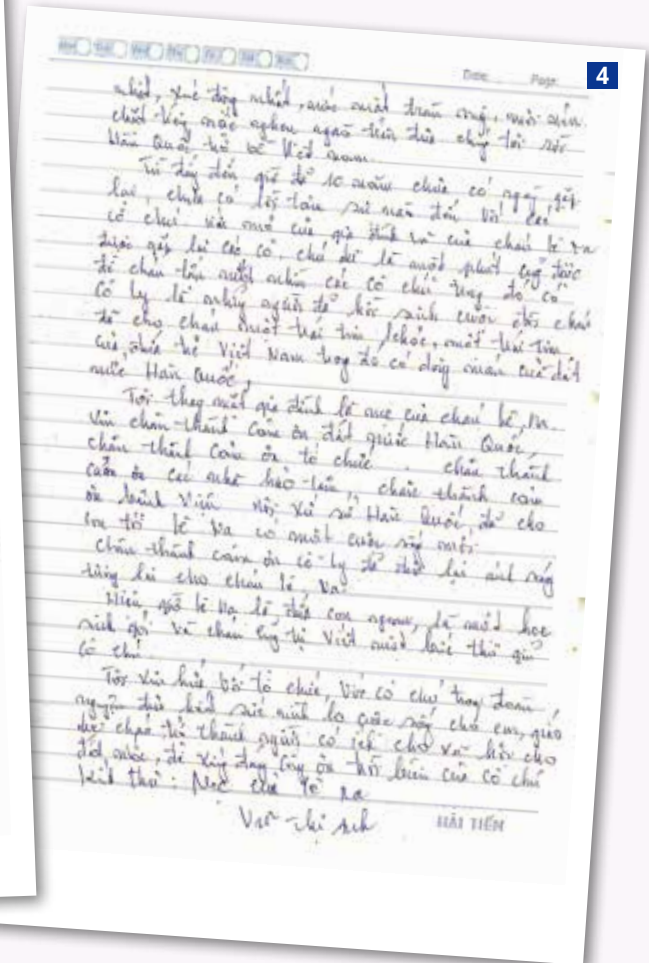 Date Page
4
nhất, xúc động nhất, nước mắt tràn mi,
chất tiếng nấc nghẹn ngào tiễn đưa chúng tôi rời
Hàn Quốc trở về Việt Nam.
Từ đấy đến giờ đã 10 năm chưa có ngày gặp
lại, chưa có lời đến với các
cô chú. của gia đình và của cháu lê na
được gặp lại các cô, chú dù là một phút cũng được
để cháu nhìn các cô chú trong đó có
cô ly là những người đã hồi sinh cuộc đời cháu
đã cho cháu một trái tim khỏe, một trái tim
của Việt Nam trong đó có dòng máu của đất
nước Hàn Quốc,
Tôi thay mặt gia đình là mẹ của cháu lê na.
xin chân thành cảm ơn đất nước Hàn Quốc,
chân thành cảm ơn tổ chức chân thành
cảm ơn các nhà hảo tâm, chân thành cảm
ơn bệnh viện nơi xứ sở Hàn Quốc, đã cho
con tôi lê na có một cuộc sống mới.
chân thành cảm ơn cô ly đã lại ánh sáng
lại cho cháu lê na.
Hiện, giờ lê na là đứa con ngoan, là một học
sinh giỏi và cháu cũng tự viết một thư gửi
cô chú
Tôi xin hứa với tổ chức, với cô chú trong đoàn,
nguyện hết sức mình lo cuộc sống cho em, giáo
cháu trở thành người có ích cho xã hội cho
đất nước, để xứng đáng công ơn của cô chú
Kính thư: Mẹ của lê na
Vũ thị
HẢI TIẾN